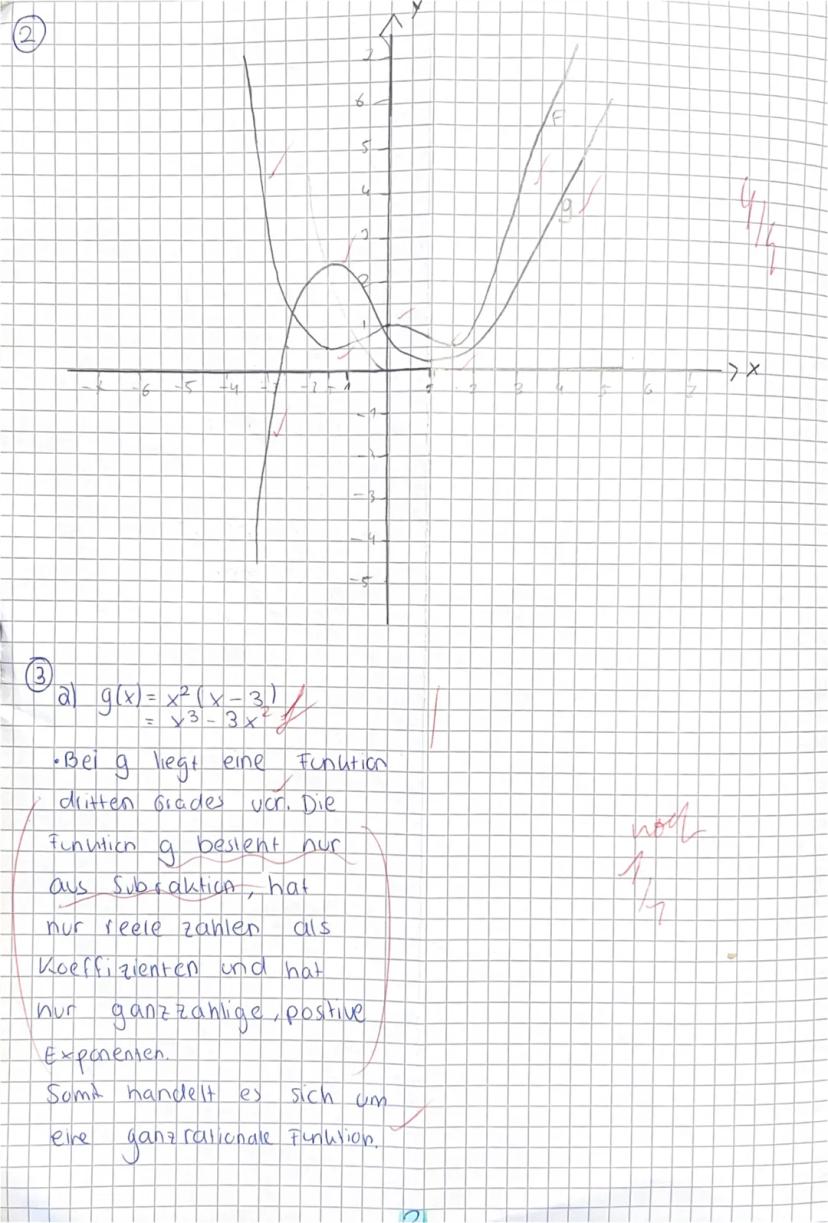 2
y
7
6
5
4
3
2
1
f
g
4/4
-7 -6 -5 -4 -3 -2 -1 1 2 3 4 5 6 7 x
-1
-2
-3
-4
-5
3
a) g(x) = x² (x - 3)
= x³ - 3x²
• Bei g liegt eine Funktion
dritten Grades vor. Die
Funktion g besteht nur
aus Subraktion, hat
nur reele zahlen als
Koeffizienten und hat
nur ganzzahlige, positive
Exponenten.
Somit handelt es sich um
eine ganzrationale Funktion.